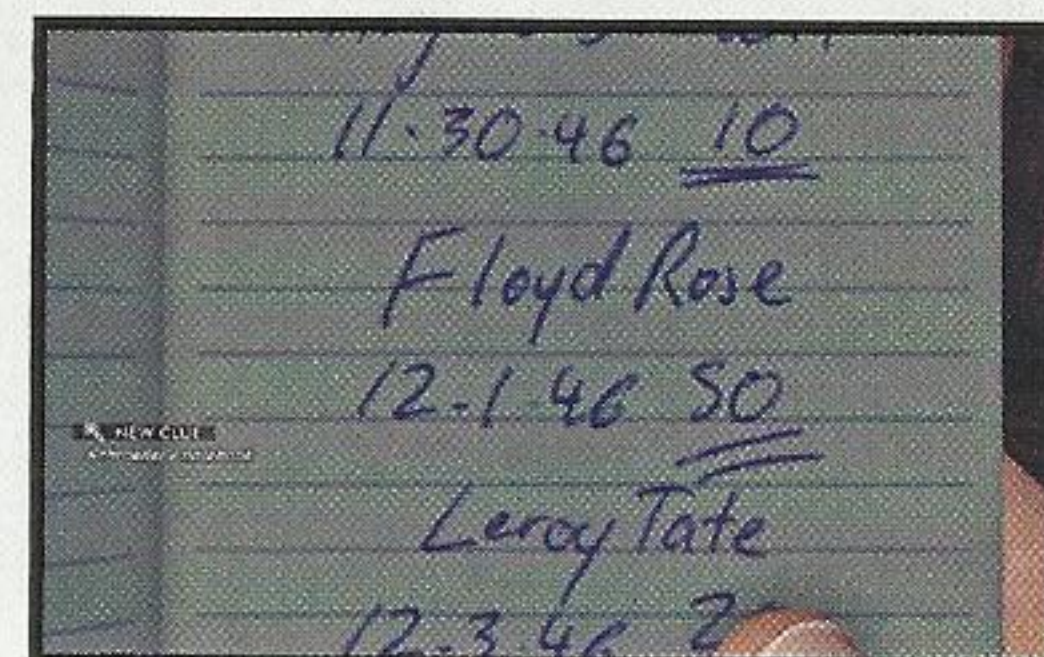 11·30·46 10
Floyd Rose
12-1-46 50
NEW CLUE
Leroy Tate
12-3-46